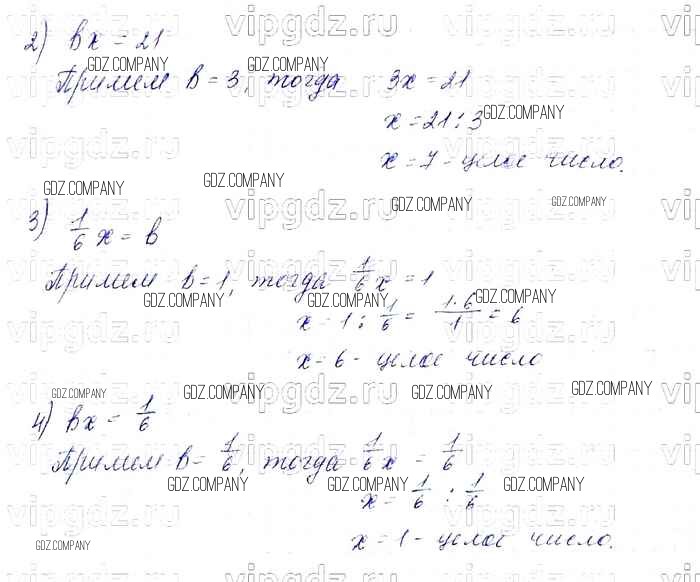 2) вх = 21
Примем в = 3, тогда 3х = 21
х = 21 : 3
х = 7 - целое число.
3) 1/6 х = в
Примем в = 1, тогда 1/6 х = 1
х = 1 : 1/6 = 1·6/1 = 6
х = 6 - целое число
4) вх = 1/6
Примем в = 1/6, тогда 1/6 х = 1/6
х = 1/6 : 1/6
х = 1 - целое число.
vipgdz.ru
GDZ.COMPANY